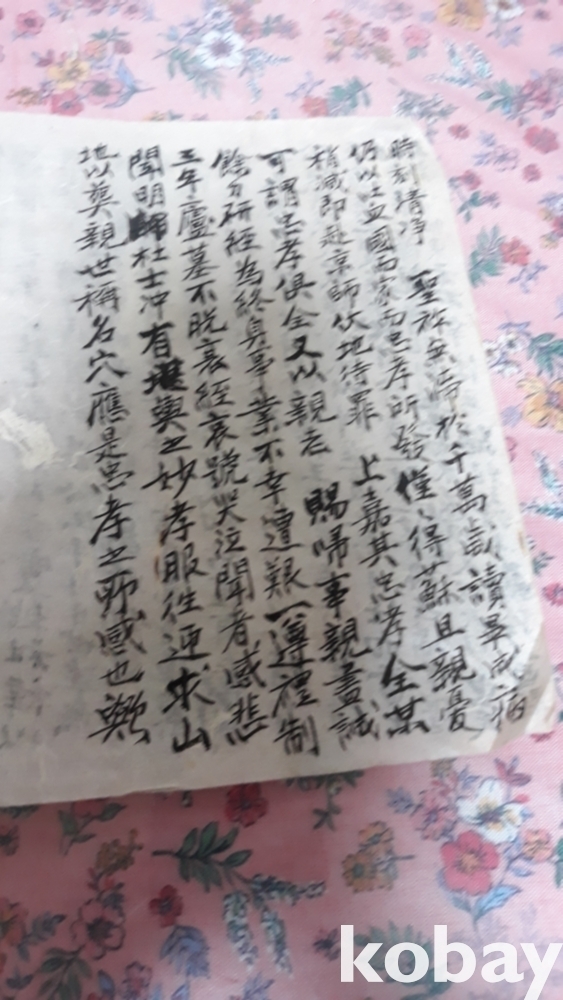 時刻清淨 聖祚無啼於千萬歲讀畢成痼
仍以吐血國而家而忠孝所發僅〻得蘇且親憂
稍減即赴京師伏地待罪 上嘉其忠孝全某
可謂忠孝俱全又以親志 賜啼事親盡誠
餘力研經為終身事業不幸遭艱一遵禮制
三年廬墓不脫衰絰哀號哭泣聞者感悲
聞明歸杜士冲有堪輿之妙孝服徃迎求山
地以葬親世稱名穴應是忠孝之所感也歟
kobay